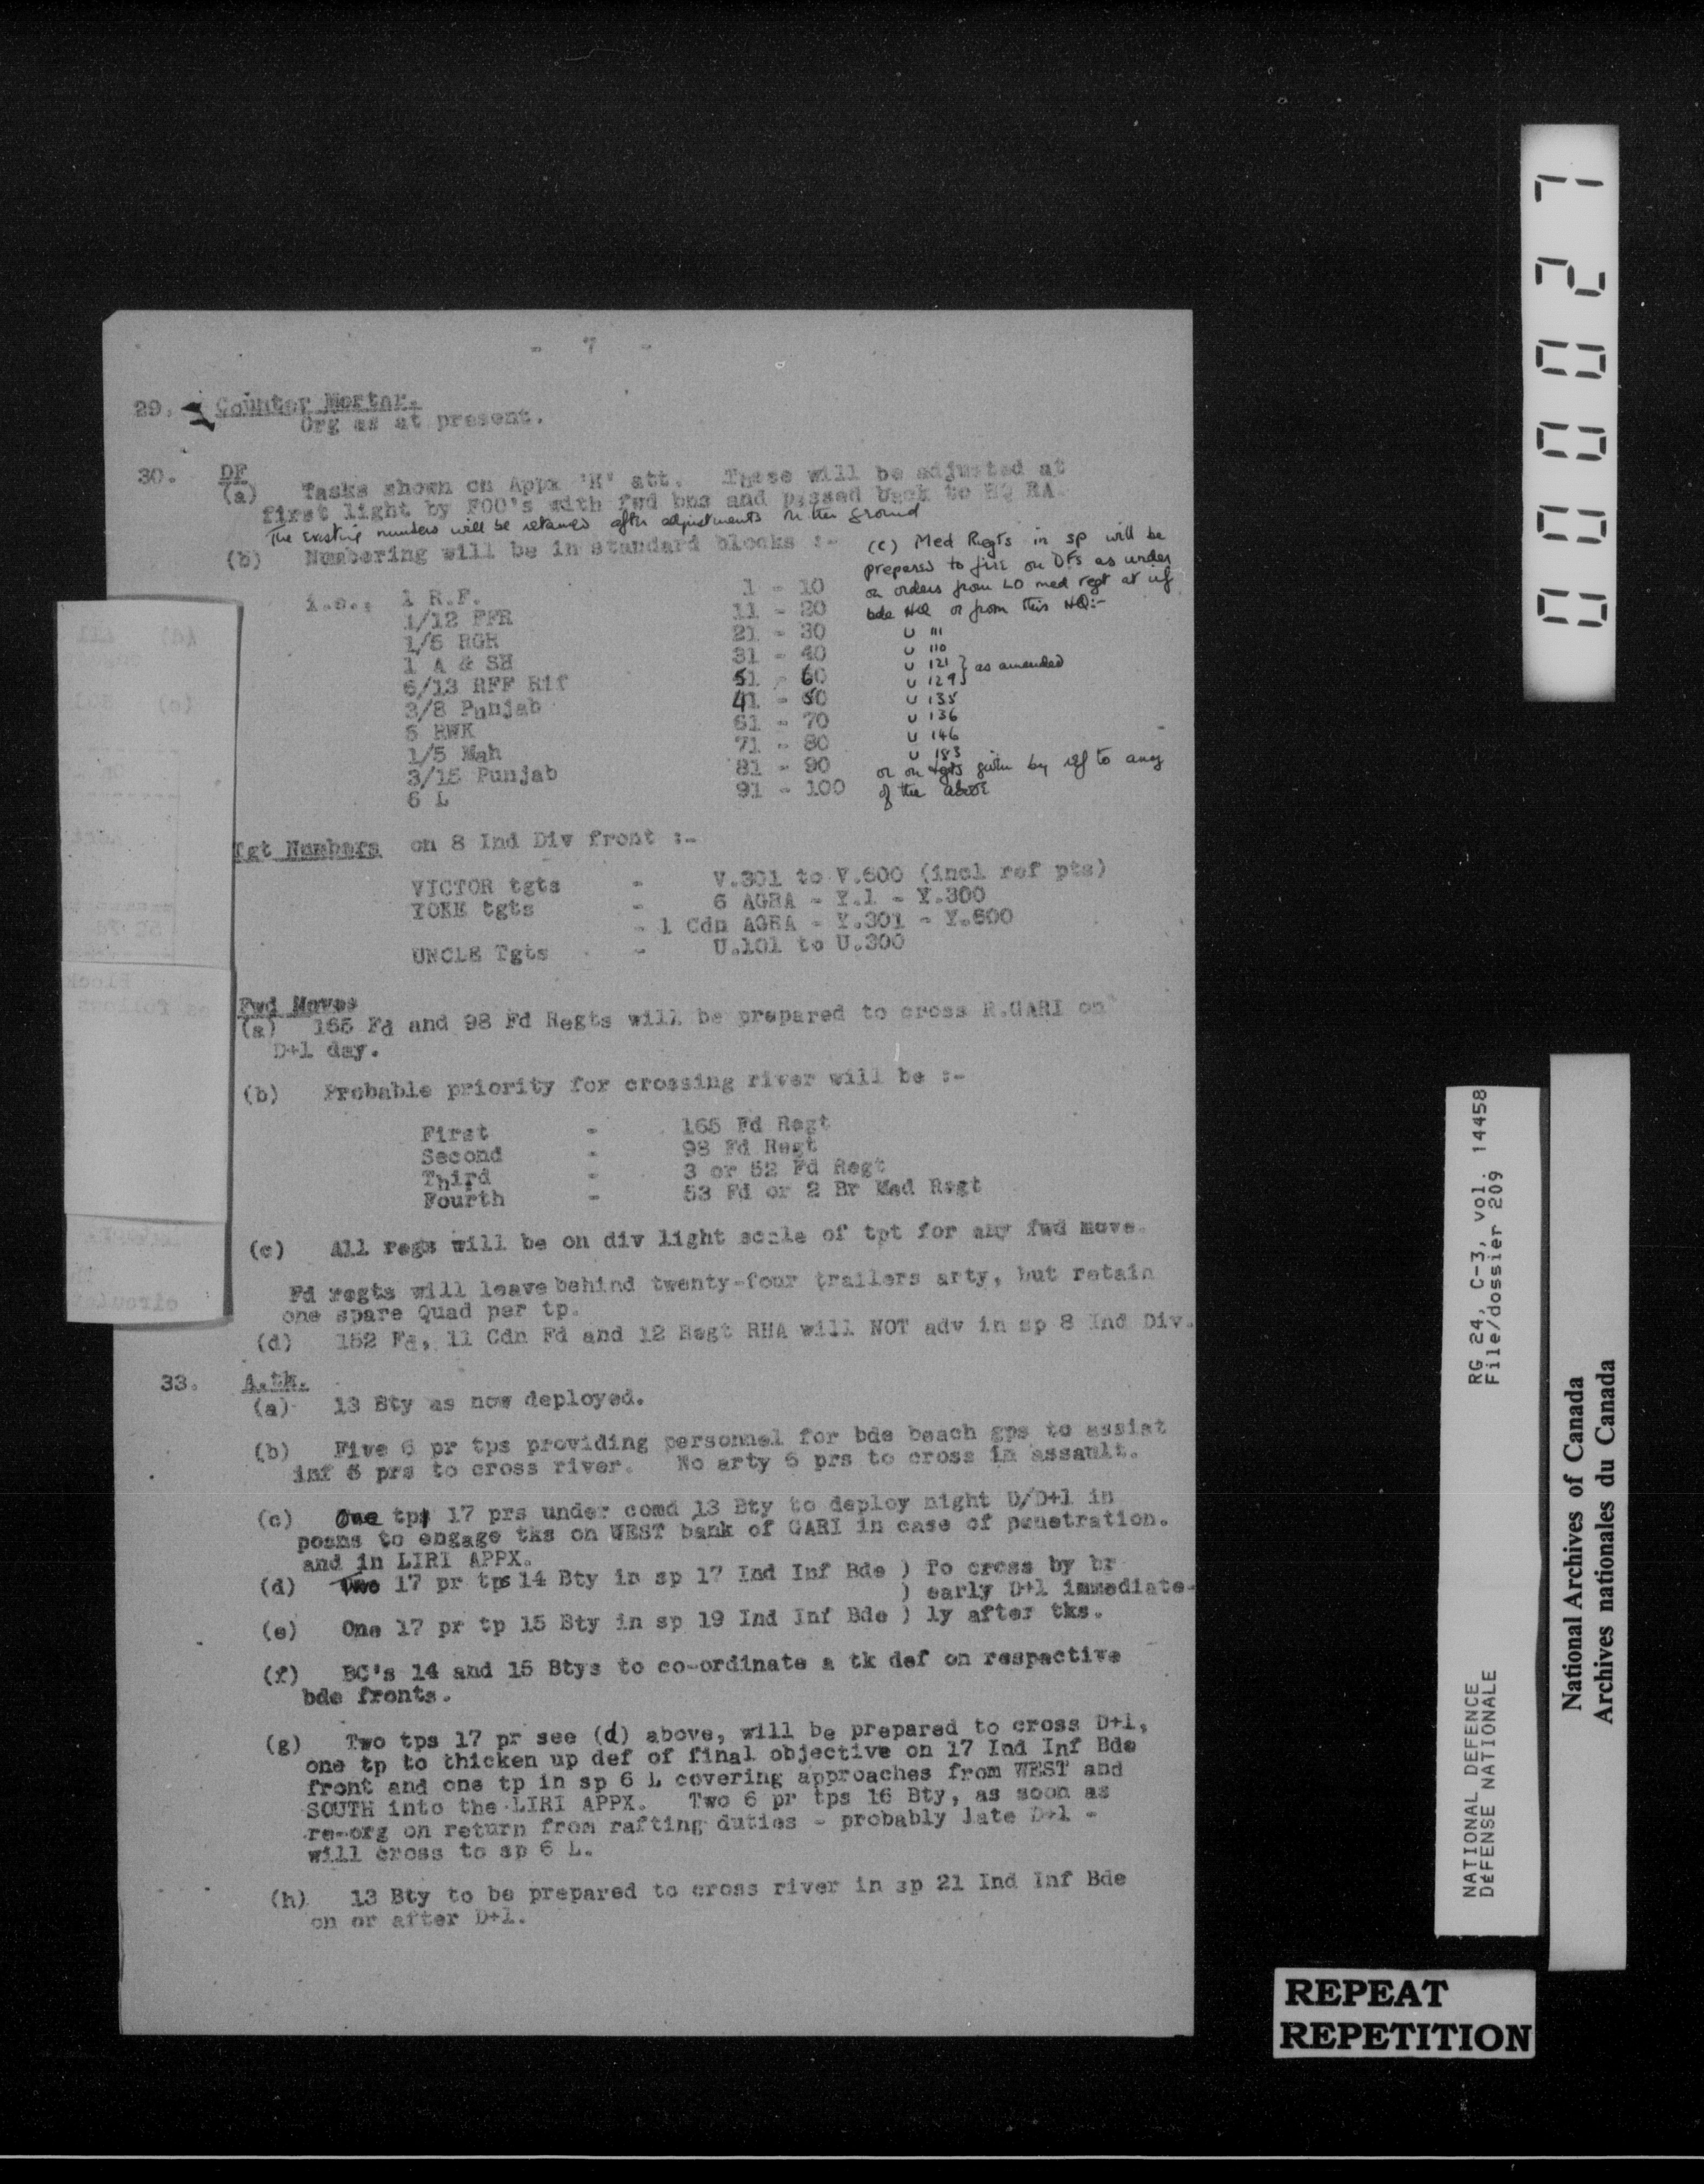 - 7 -
29. Counter Mortar.
Org as at present.
30. DF
(a) Tasks shown on Appx 'H' att. These will be adjusted at
first light by FOO's with fwd bns and passed back to HQ RA.
The existing numbers will be retained after adjustments on the ground
(b) Numbering will be in standard blocks :-
i.e., 1 R.F. 1 - 10
1/12 FFR 11 - 20
1/5 RGR 21 - 30
1 A & SH 31 - 40
6/13 RFF Rif 51 - 60
3/8 Punjab 41 - 50
6 RWK 61 - 70
1/5 Mah 71 - 80
3/15 Punjab 81 - 90
6 L 91 - 100
(c) Med Regts in sp will be
prepared to fire on DFs as under
on orders from LO med regt at inf
bde HQ or from this HQ:-
U 111
U 110
U 121 } as amended
U 129 }
U 135
U 136
U 146
U 183
or on tgts given by ref to any
of the above
Tgt Numbers on 8 Ind Div front :-
VICTOR tgts - V.301 to V.600 (incl ref pts)
YOKE tgts - 6 AGRA - Y.1 - Y.300
- 1 Cdn AGRA - Y.301 - Y.600
UNCLE Tgts - U.101 to U.300
Fwd Moves
(a) 165 Fd and 98 Fd Regts will be prepared to cross R.GARI on
D+1 day.
(b) Probable priority for crossing river will be :-
First - 165 Fd Regt
Second - 98 Fd Regt
Third - 3 or 52 Fd Regt
Fourth - 53 Fd or 2 Br Med Regt
(c) All regs will be on div light scale of tpt for any fwd move.
Fd regts will leave behind twenty-four trailers arty, but retain
one spare Quad per tp.
(d) 152 Fd, 11 Cdn Fd and 12 Regt RHA will NOT adv in sp 8 Ind Div.
33. A.tk.
(a) 13 Bty as now deployed.
(b) Five 6 pr tps providing personnel for bde beach gps to assist
inf 6 prs to cross river. No arty 6 prs to cross in assault.
(c) One tp 17 prs under comd 13 Bty to deploy night D/D+1 in
posns to engage tks on WEST bank of GARI in case of penetration.
and in LIRI APPX.
(d) Two 17 pr tps 14 Bty in sp 17 Ind Inf Bde ) To cross by br
) early D+1 immediate-
(e) One 17 pr tp 15 Bty in sp 19 Ind Inf Bde ) ly after tks.
(f) BC's 14 and 15 Btys to co-ordinate a tk def on respective
bde fronts.
(g) Two tps 17 pr see (d) above, will be prepared to cross D+1,
one tp to thicken up def of final objective on 17 Ind Inf Bde
front and one tp in sp 6 L covering approaches from WEST and
SOUTH into the LIRI APPX. Two 6 pr tps 16 Bty, as soon as
re-org on return from rafting duties - probably late D+1 -
will cross to sp 6 L.
(h) 13 Bty to be prepared to cross river in sp 21 Ind Inf Bde
on or after D+1.
000027
NATIONAL DEFENCE RG 24, C-3, vol. 14458
DÉFENSE NATIONALE File/dossier 209
National Archives of Canada
Archives nationales du Canada
REPEAT
REPETITION